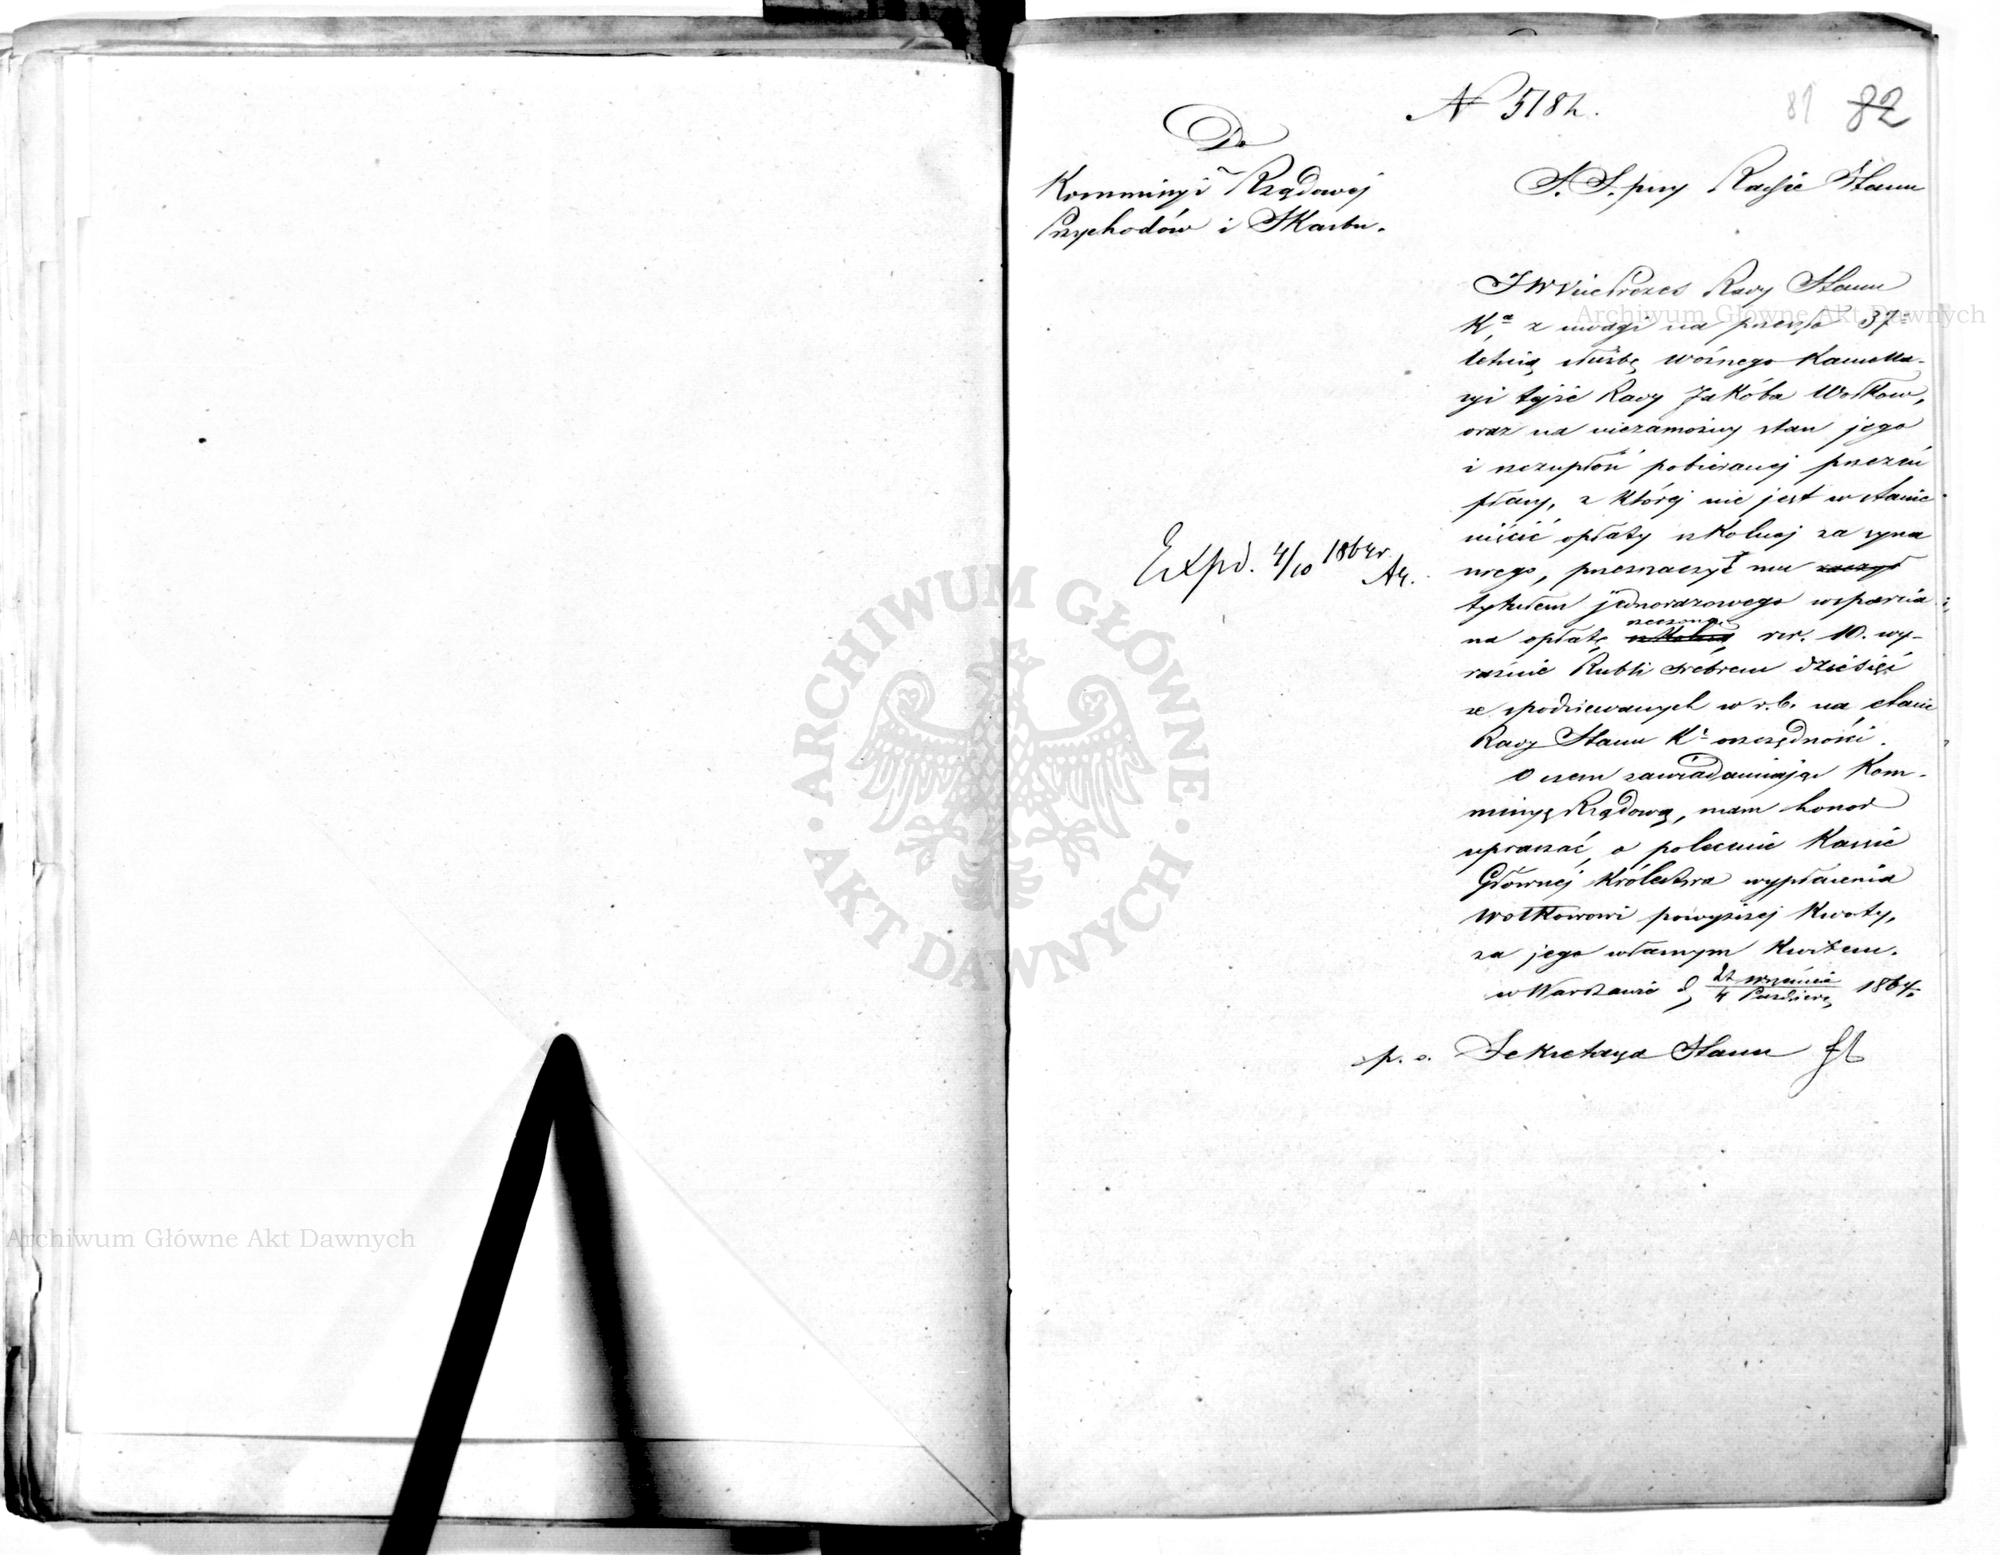 N 5182.
81 82
Do
Kommissyi Rządowej
Przychodów i Skarbu.
S. S. przy Radzie Stanu
JW Vice Prezes Rady Stanu
Kª z uwagi na przeszło 37º
letnią służbę woźnego Kancella-
ryi tejże Rady Jakóba Wołkow,
oraz na niezamożny stan jego
i szczupłość pobieranej przezeń
płacy, z której nie jest w stanie
uiścić opłaty szkolnej za syna
swego, przeznaczył mu raczył
tytułem jednorazowego wsparcia
na opłatę szkolną rzeczoną rsr. 10. wy-
raźnie Rubli srebrem dziesięć
ze spodziewanych w r. b. na etacie
Rady Stanu Kª oszczędności.
O czem zawiadamiając Kom-
missyę Rządową, mam honor
upraszać o polecenie Kassie
Głównej Królestwa wypłacenia
Wołkowowi powyższej kwoty,
za jego własnym kwitem.
w Warszawie d. 22 Września / 4 Paździer. 1864 r.
Expd. 4/10 1864 r.
p. o. Sekretarza Stanu
Archiwum Główne Akt Dawnych
Archiwum Główne Akt Dawnych
ARCHIWUM GŁÓWNE · AKT DAWNYCH ·